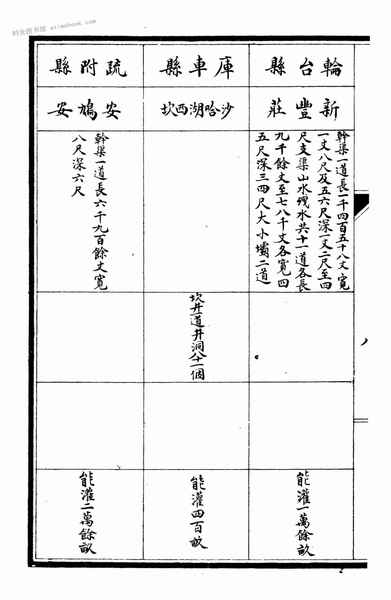 時光圖書館 - eltshu.com
輪台縣
新豐莊
幹渠一道長一千四百五十八丈寬
一丈八尺及五六尺深一丈二尺至四
尺支渠山水㳄水共十一道各長
九千餘丈至七八千丈各寬四
五尺深三四尺大小壩二道
能灌一萬餘畝
庫車縣
沙哈湖西坎
坎井一道井洞八十一個
能灌四百畝
疏附縣
安鳩安
幹渠一道長六千九百餘丈寬
八尺深六尺
能灌二萬餘畝